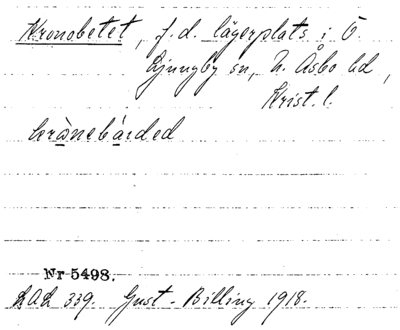 Kronobetet, f.d. lägerplats i Ö.
Ljungby sn, N. Åsbo hd,
Krist. l.
krànebàrded
Nr 5498.
LAL 339. Gust. Billing 1918.